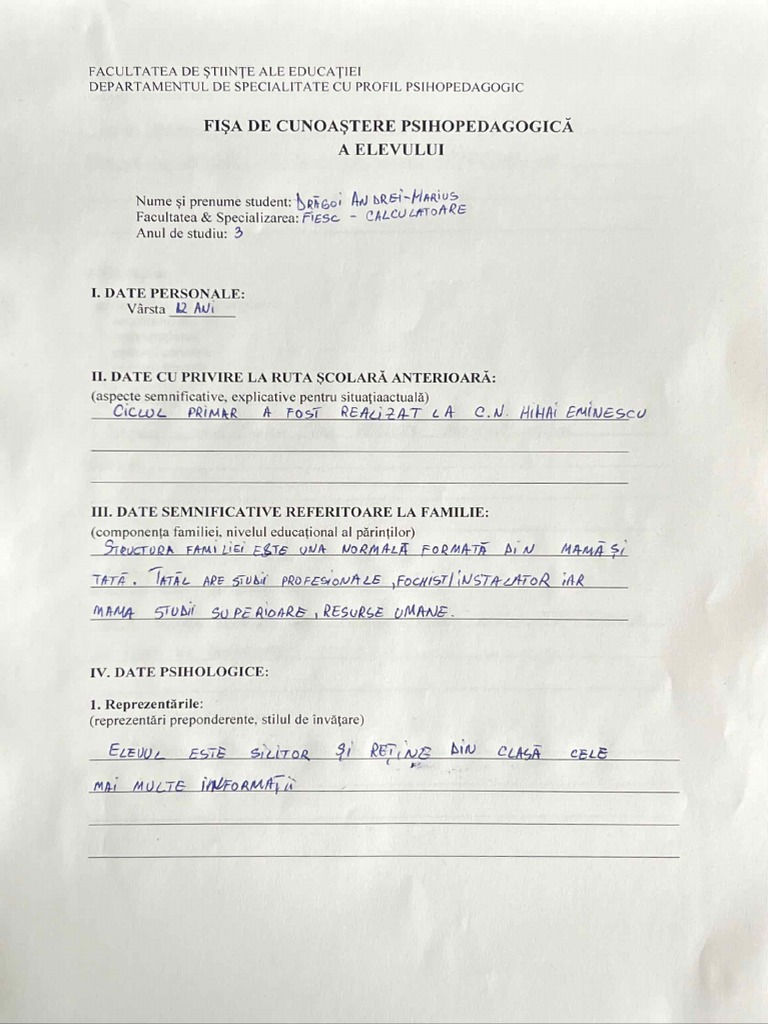 FACULTATEA DE ȘTIINȚE ALE EDUCAȚIEI
DEPARTAMENTUL DE SPECIALITATE CU PROFIL PSIHOPEDAGOGIC
FIȘA DE CUNOAȘTERE PSIHOPEDAGOGICĂ
A ELEVULUI
Nume și prenume student: DRĂGOI ANDREI-MARIUS
Facultatea & Specializarea: FIESC - CALCULATOARE
Anul de studiu: 3
I. DATE PERSONALE:
Vârsta 12 ANI
II. DATE CU PRIVIRE LA RUTA ȘCOLARĂ ANTERIOARĂ:
(aspecte semnificative, explicative pentru situațiaactuală)
CICLUL PRIMAR A FOST REALIZAT LA C.N. MIHAI EMINESCU
III. DATE SEMNIFICATIVE REFERITOARE LA FAMILIE:
(componența familiei, nivelul educațional al părinților)
STRUCTURA FAMILIEI ESTE UNA NORMALĂ FORMATĂ DIN MAMĂ ȘI
TATĂ. TATĂL ARE STUDII PROFESIONALE, FOCHIST/INSTALATOR IAR
MAMA STUDII SUPERIOARE, RESURSE UMANE.
IV. DATE PSIHOLOGICE:
1. Reprezentările:
(reprezentări preponderente, stilul de învățare)
ELEVUL ESTE SILITOR ȘI REȚINE DIN CLASĂ CELE
MAI MULTE INFORMAȚII